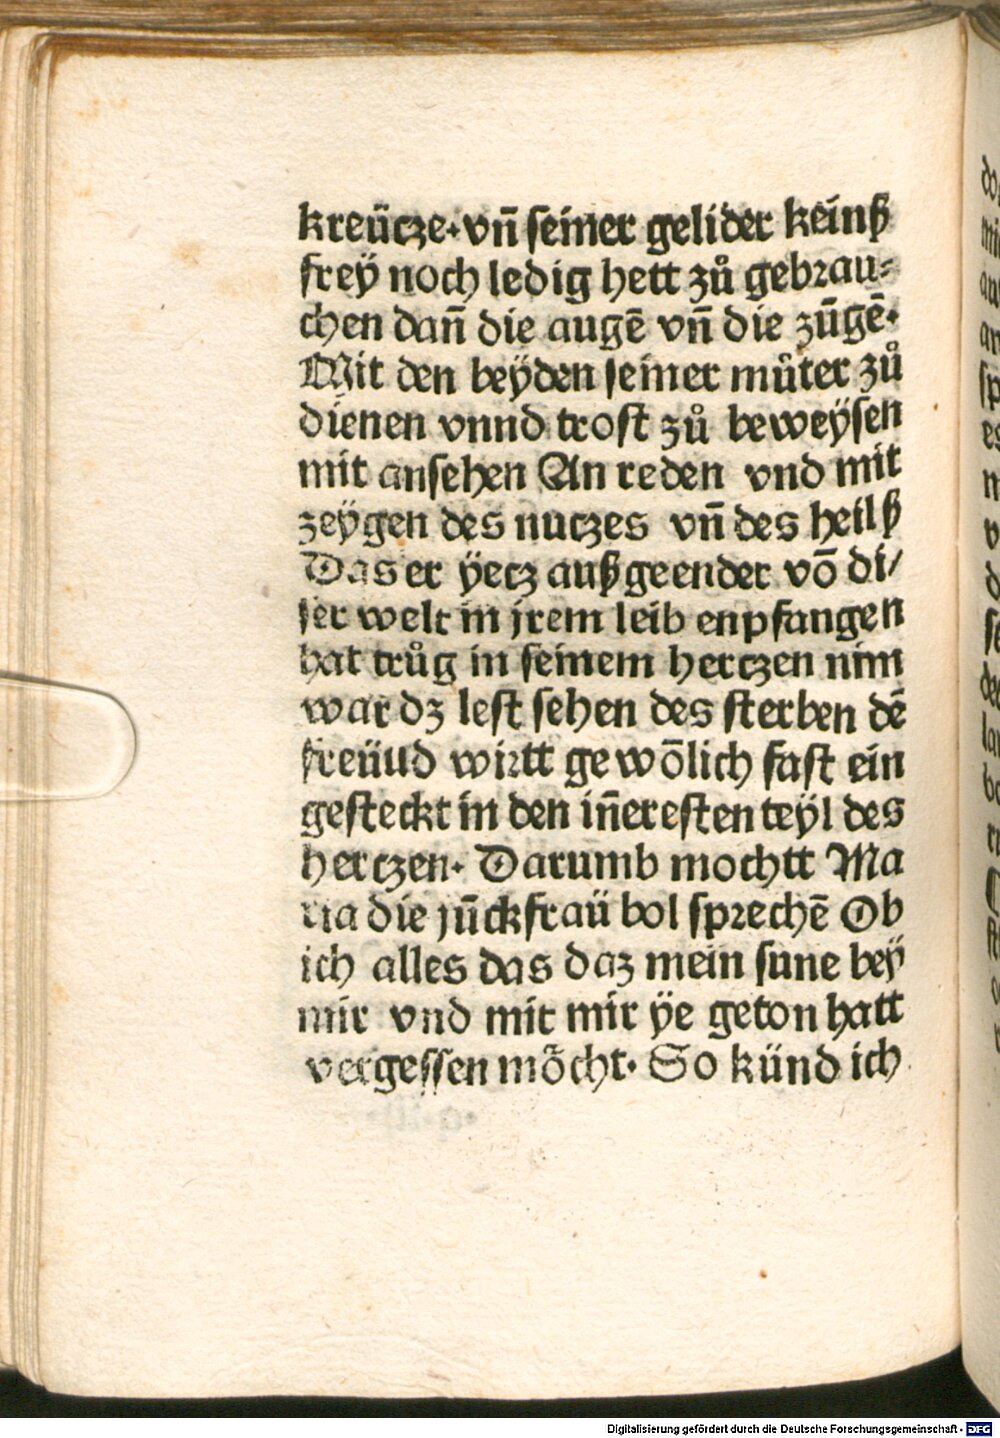 kreücze. vn̄ seiner gelider keinß
freÿ noch ledig hett zů gebrau⸗
chen dan̄ die augē vn̄ die zūgē.
Mit den beÿden seiner můter zů
dienen vnnd trost zů beweÿsen
mit ansehen An reden vnd mit
zeÿgen des nutzes vn̄ des heilß
Das er ÿetz außgeender vō di/
ser welt in jrem leib enpfangen
hat trůg in seinem hertzen nim
war dz lest sehen des sterben dē
freüud wirtt gewōlich fast ein
gesteckt in den in̄eresten teÿl des
hertzen. Darumb mochtt Ma
ria die jūckfraü bol sprechē Ob
ich alles das daz mein sune beÿ
mir vnd mit mir ÿe geton hatt
vergessen möcht. So künd ich
Digitalisierung gefördert durch die Deutsche Forschungsgemeinschaft - DFG